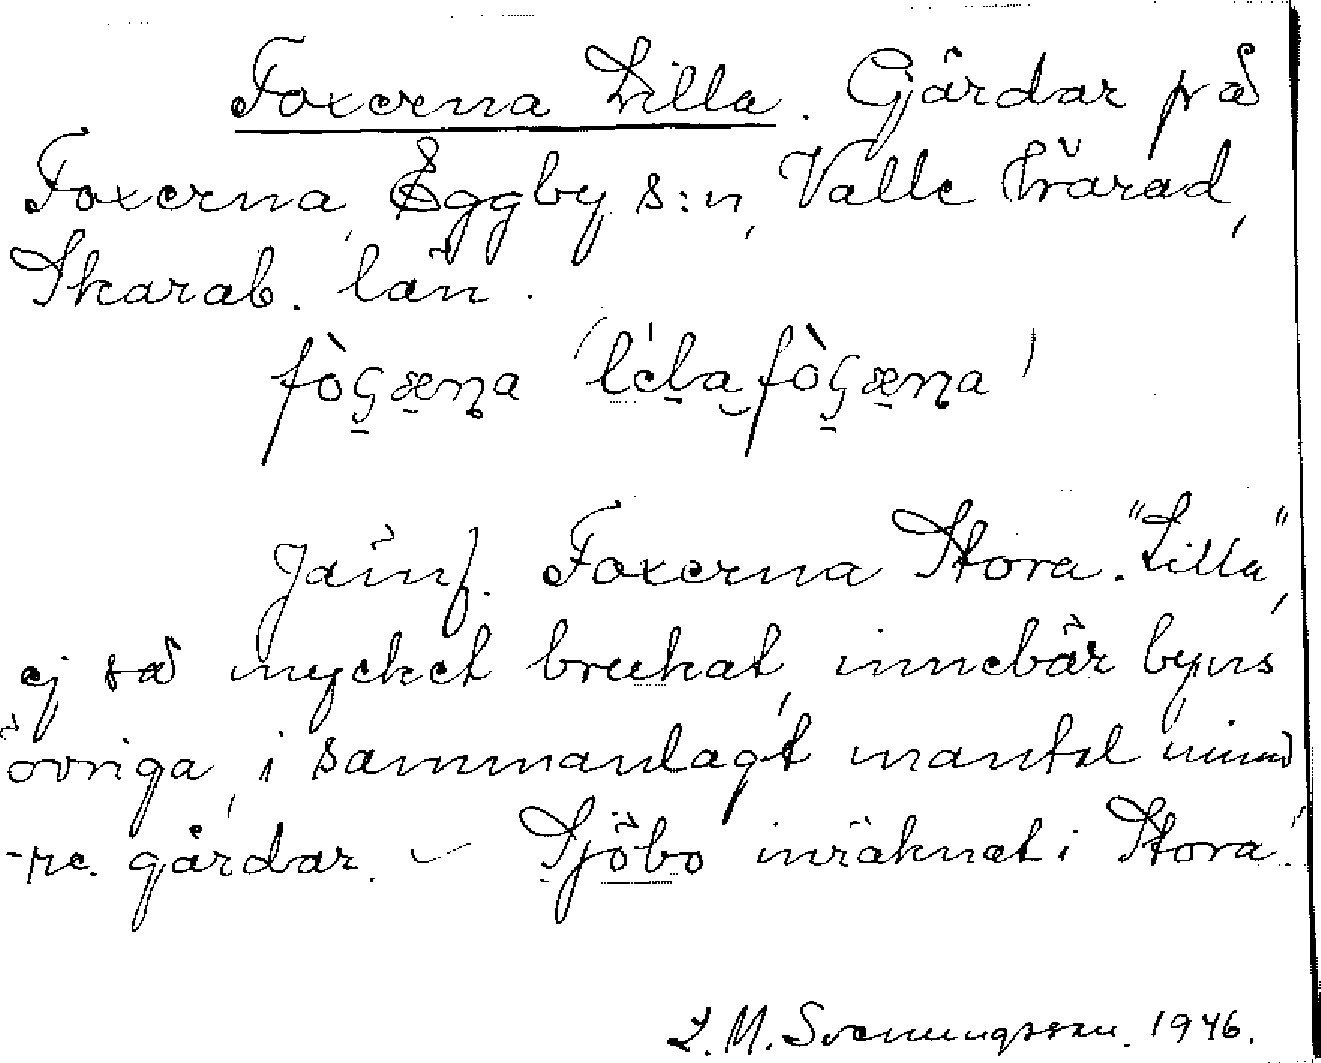 Foxerna Lilla. Gårdar på
Foxerna, Eggby s:n, Valle härad,
Skarab. län.
Jämf. Foxerna Stora. "Lilla",
ej så mycket brukat, innebär byns
övriga, i sammanlagt mantal mind-
-re gårdar. – Sjöbo inräknat i Stora.
L. M. Svenungsson. 1946.